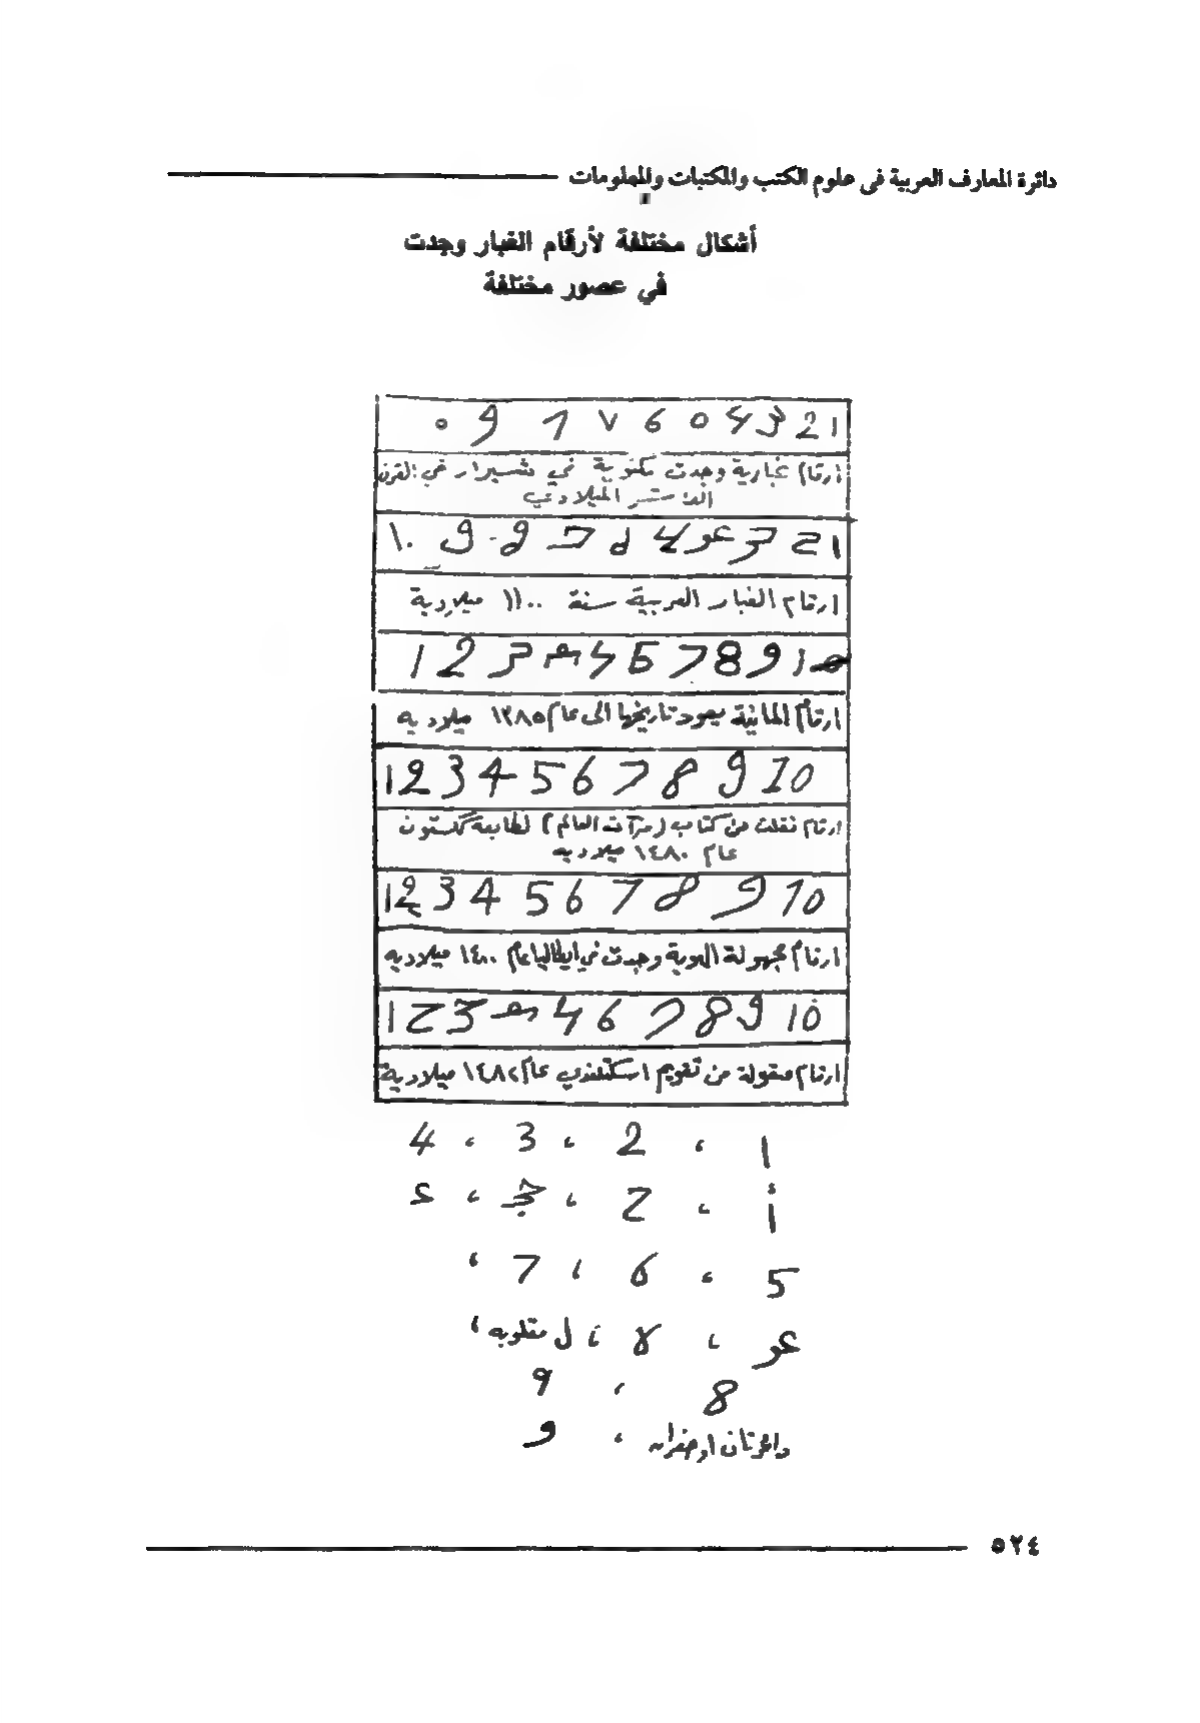 دائرة المعارف العربية فى علوم الكتب والمكتبات والمعلومات
أشكال مختلفة لأرقام الغبار وجدت
في عصور مختلفة
٠ 9 1 ٧ 6 ٥ 4 3 2 1
ارقام غبارية وجدت مكتوبة في شيراز في القرن
الميلادي
ارقام الغبار العربية سنة ١١٠٠ ميلادية
1 2 3 4 5 6 7 8 9 10
ارقام المانية يعود تاريخها الى عام ١٣٨٥ ميلاديه
1 2 3 4 5 6 7 8 9 10
ارقام نقلت من كتاب (مرآت العالم) لطابعة كاستون
عام ١٤٨٠ ميلاديه
1 2 3 4 5 6 7 8 9 10
ارقام مجهولة الهوية وجدت في ايطاليا عام ١٤٠٠ ميلاديه
1 2 3 4 6 7 8 9 10
ارقام منقولة من تقويم اسكتلندي عام ١٤٨٢ ميلادية
1 ، 2 ، 3 ، 4
أ ، ح ، ـج ، ع
5 ، 6 ، 7 ،
عو ، لا ، ل مقلوبه ،
8 ، 9
دائرتان او صفران ، و
٥٢٤